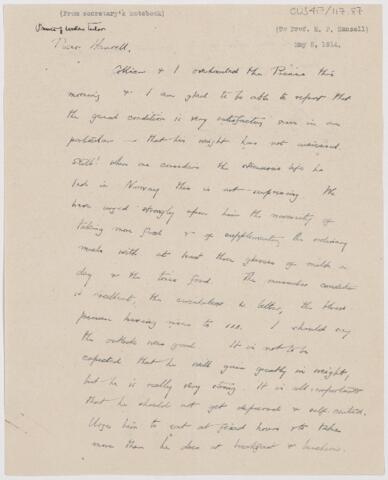 (From secretary's notebook)
OUS417/117.87
(To Prof. E. P. Hansell)
May 5, 1914.
Dear Hansell
Collier & I overhauled the Prince this
morning & I am glad to be able to report that
the general condition is very satisfactory save in one
particular - that his weight has not increased.
Still when one considers the strenuous life he
led in Norway this is not surprising. We
have urged strongly upon him the necessity of
taking more food & of supplementing the ordinary
meals with at least three glasses of milk a
day & the tonic food. The muscular condition
is excellent, the circulation is better, the blood
pressure having risen to 122. I should say
the outlook was good. It is not to be
expected that he will gain greatly in weight,
but he is really very strong. It is all-important
that he should not get depressed & self-centred.
Urge him to eat at fixed hours & to take
more than he does at breakfast & luncheon.